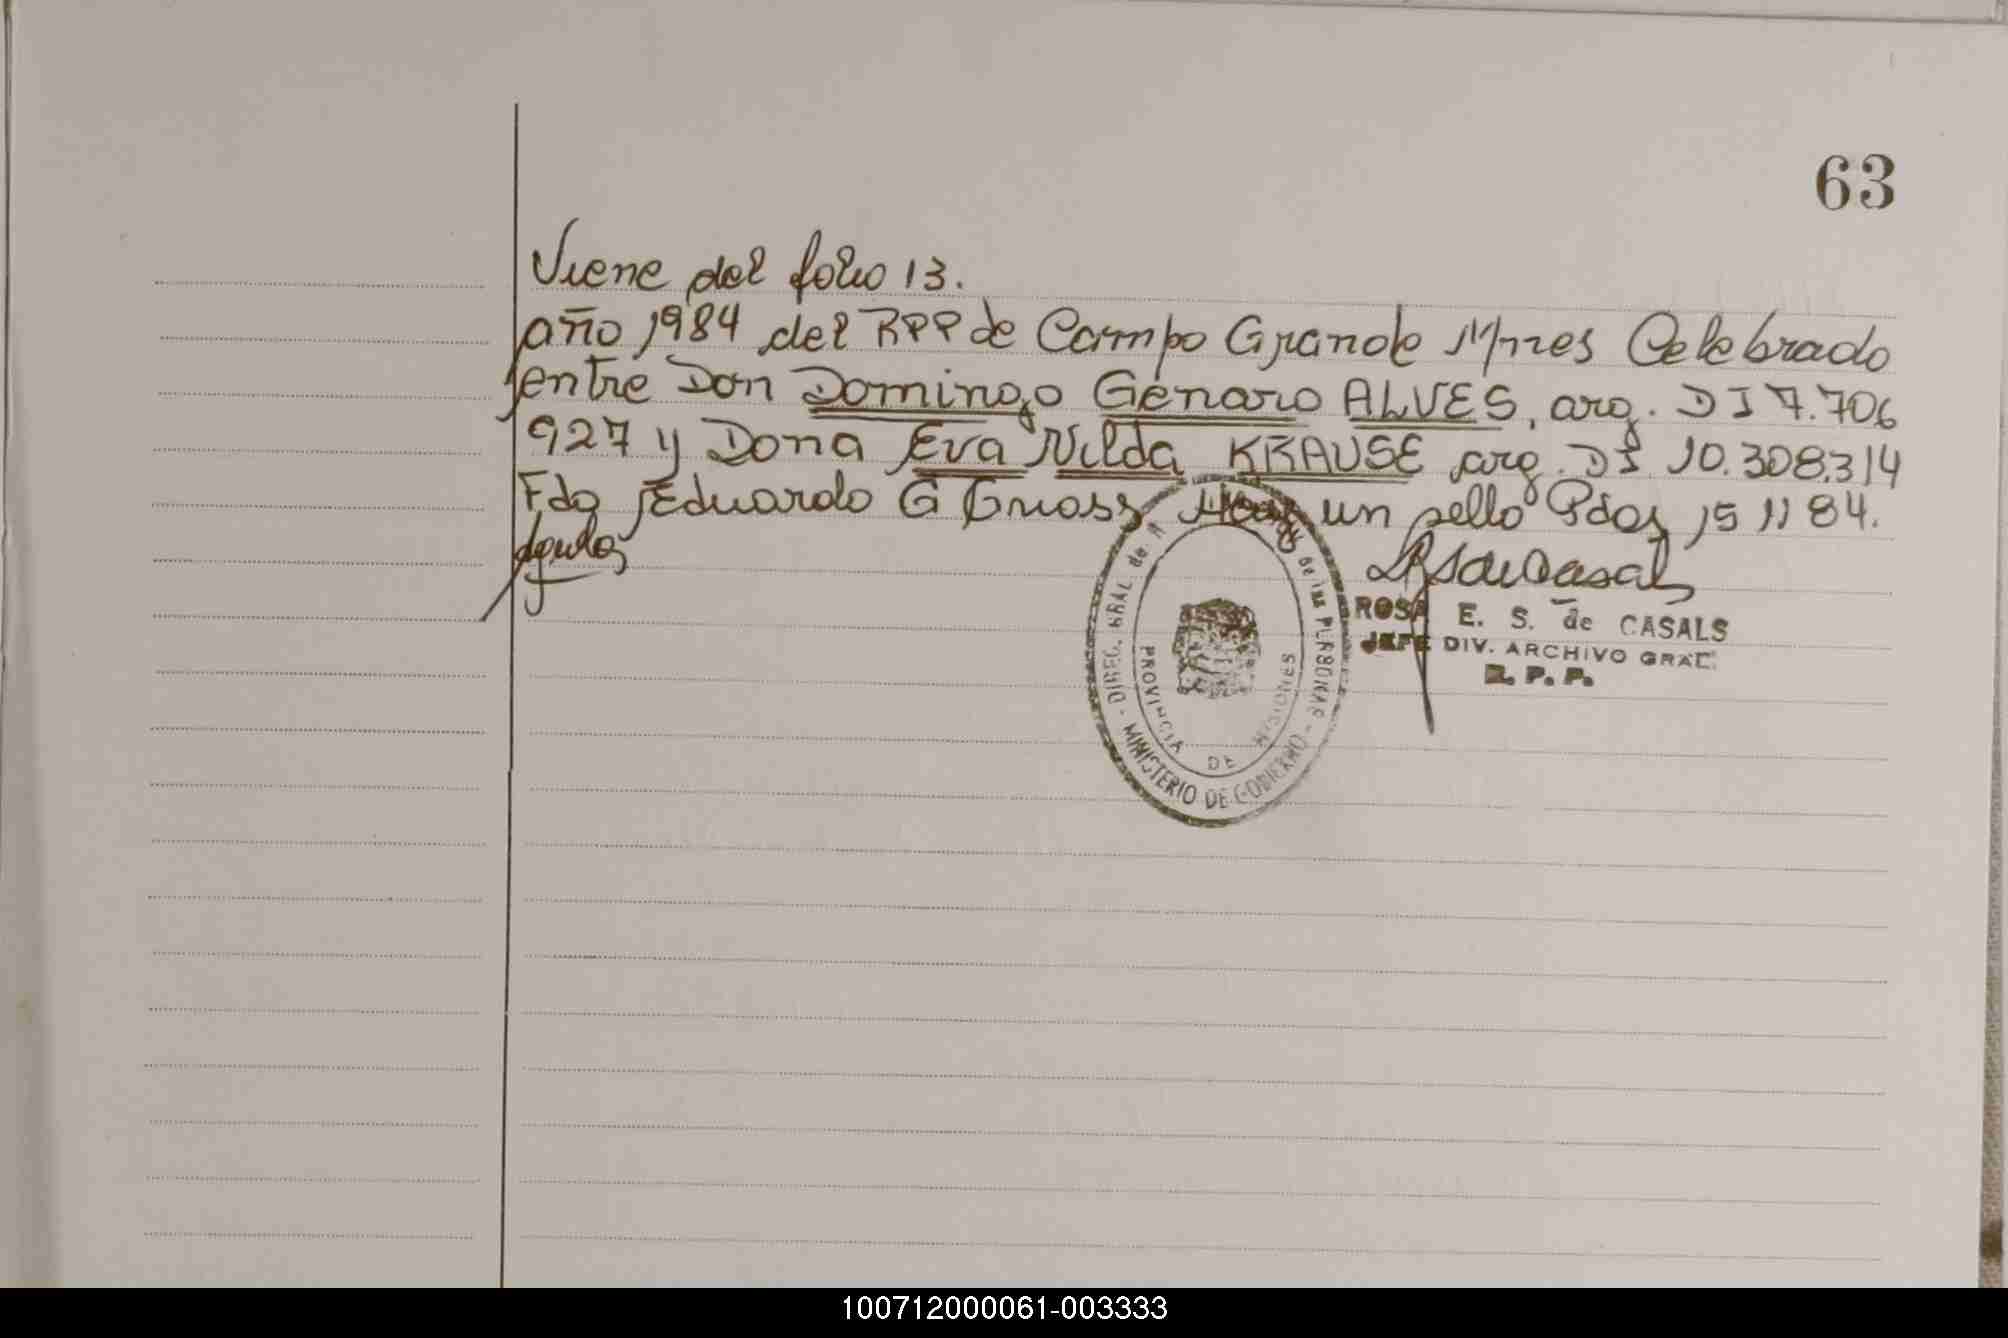 63
Viene del folio 13.
año 1984 del RPP de Campo Grande Mnes Celebrado
entre Don Domingo Genaro ALVES, arg. DI 7.706
927 y Dona Eva Nilda KRAUSE arg. DI 10.308.314
Fdo Eduardo G Hay un sello Pdas 15 11 84.
ROSA E. S. de CASALS
JEFE DIV. ARCHIVO GRAL.
R. P. P.
DIREC. GRAL de de las PERSONAS - MINISTERIO DE GOBIERNO -
PROVINCIA DE MISIONES
100712000061-003333